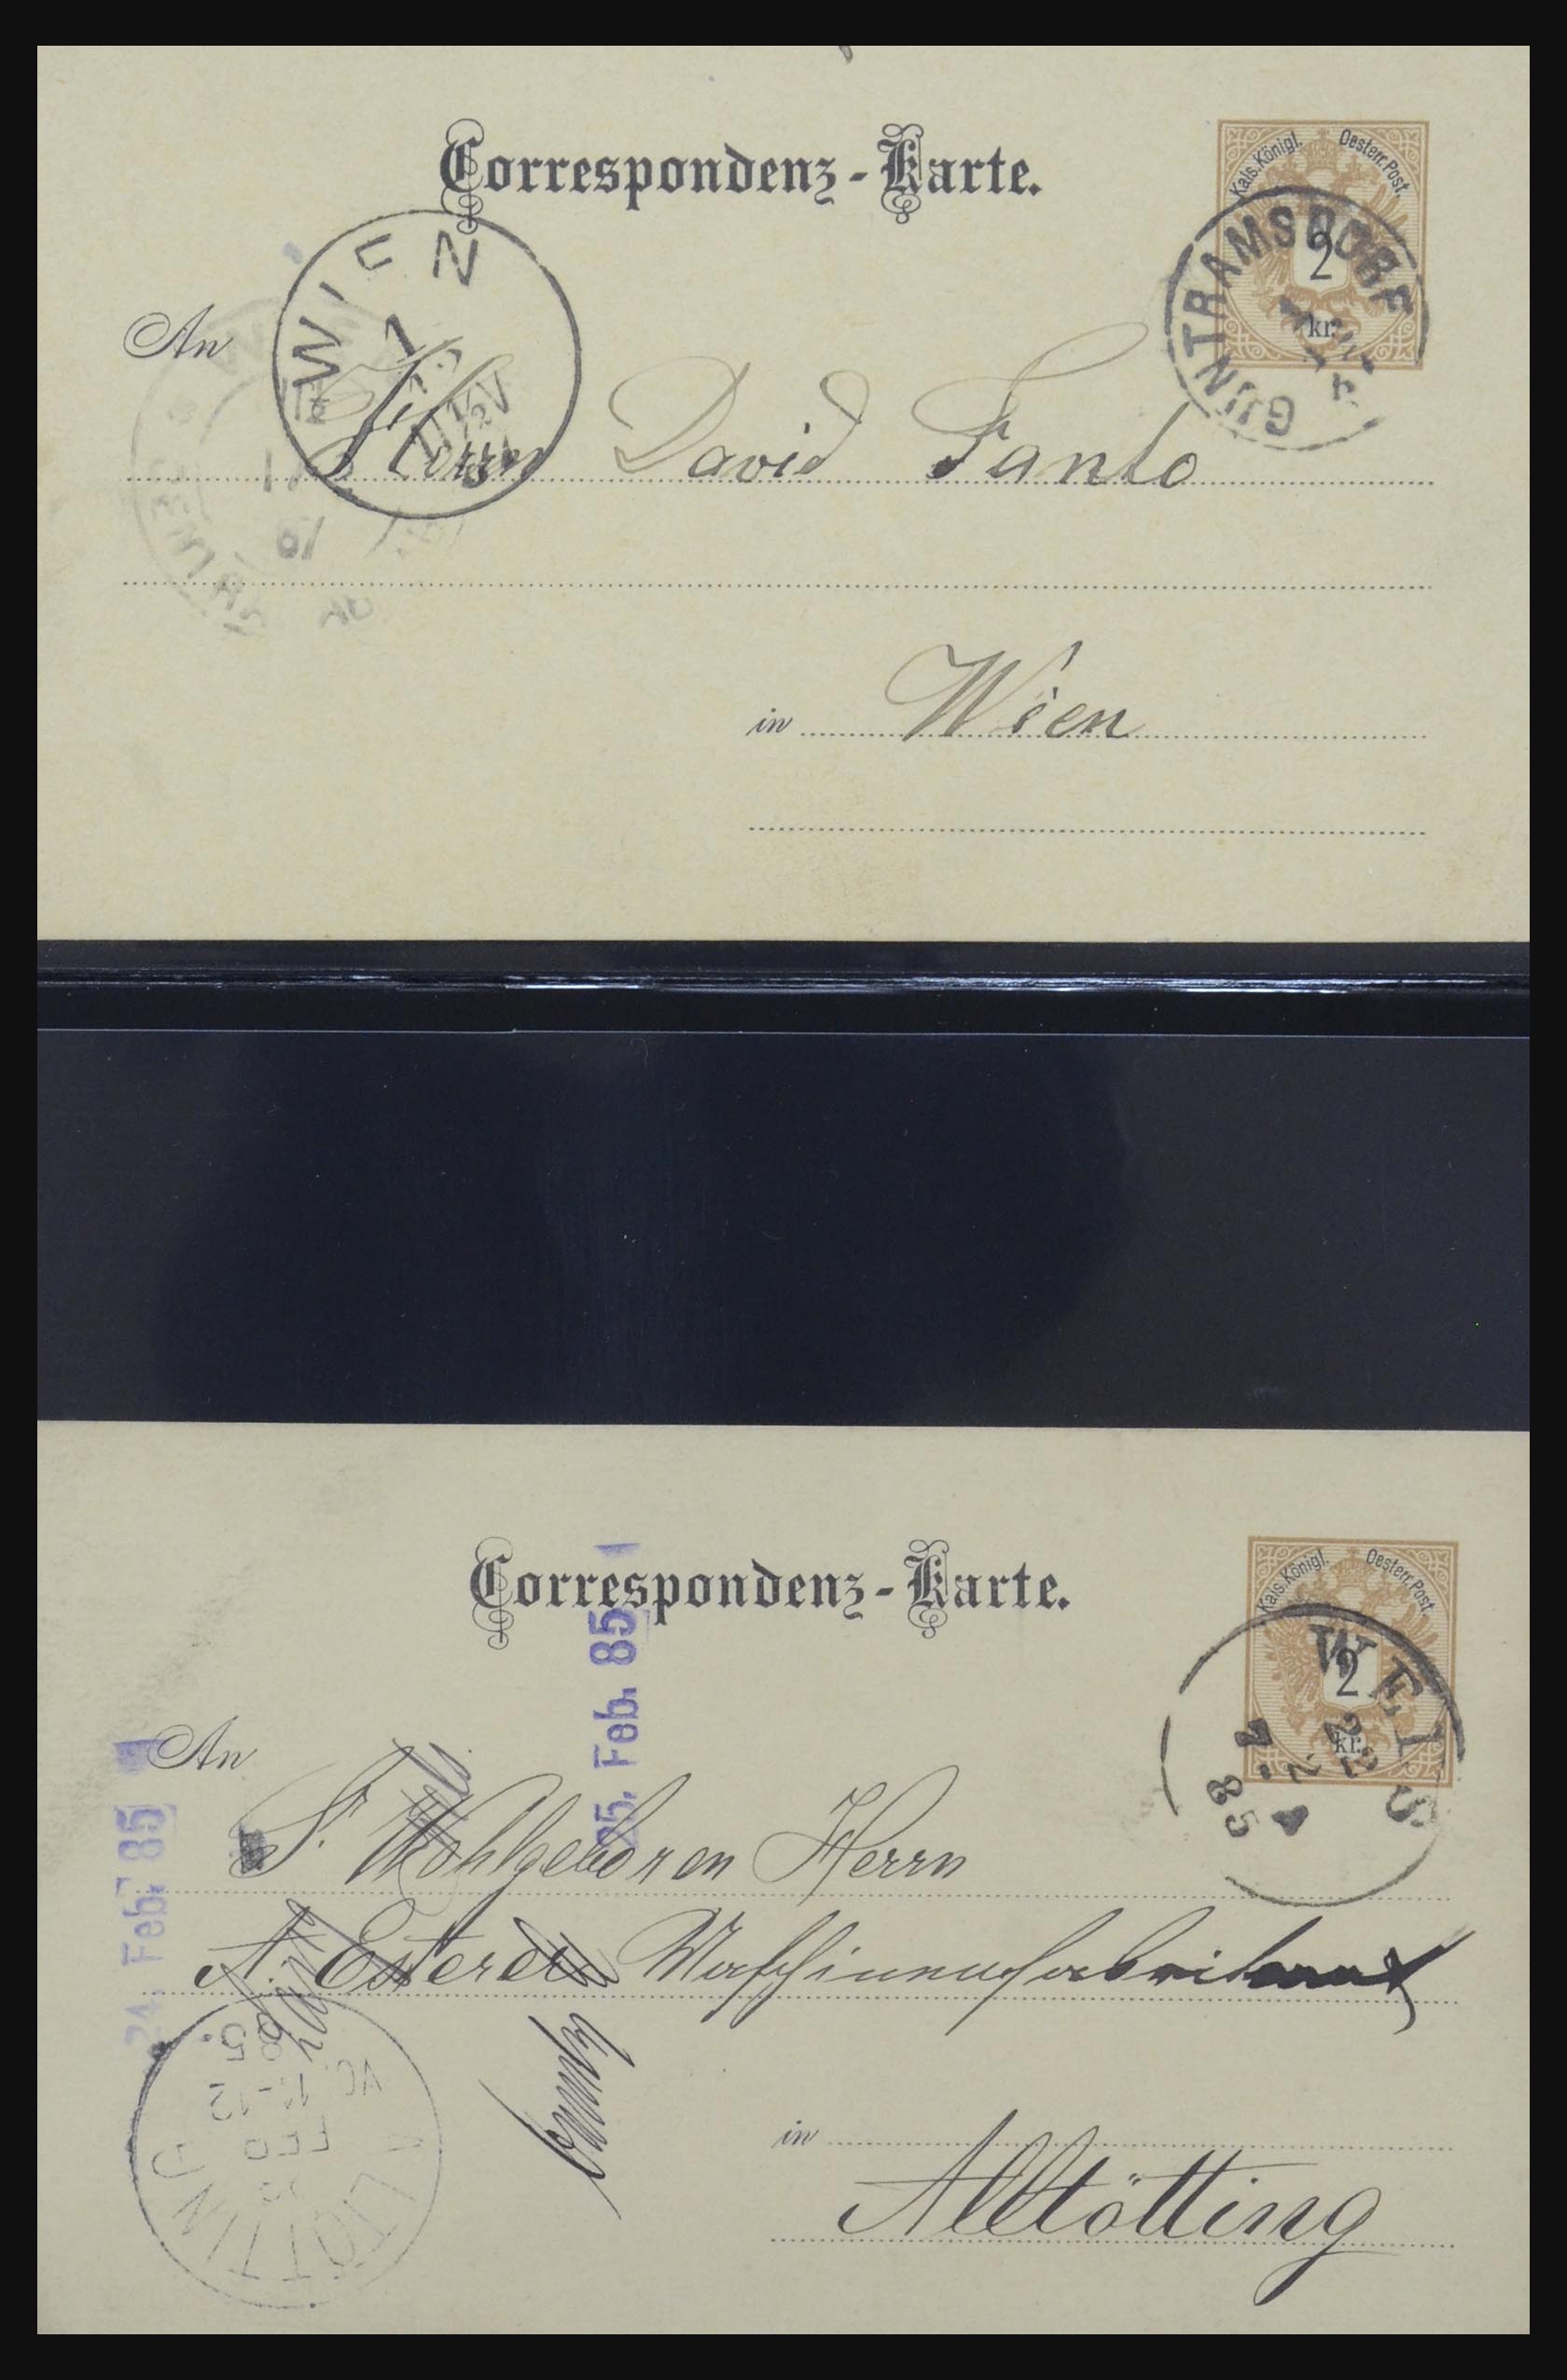 Correspondenz-Karte.
Kais. Königl. Oesterr. Post.
2
kr.
GUNTRAMSDORF
WIEN
An
Herrn David Fanto
in Wien
Correspondenz-Karte.
Kais. Königl. Oesterr. Post.
2
kr.
WELS
23 2
7-A
85
25. Feb. 85
24. Feb. 85
An
S. Wohlgeboren Herrn
A. Esterer Maschinenfabrikant
in
Alltötting